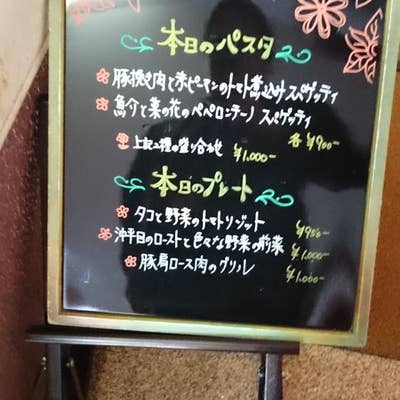 本日のパスタ
豚挽き肉と赤ピーマンのトマト煮込み スパゲッティ
魚介と菜の花のペペロンチーノ スパゲッティ
各 ¥900-
上記二種の盛り合わせ ¥1,000-
本日のプレート
タコと野菜のトマトリゾット ¥950-
沖平目のローストと色々な野菜の前菜 ¥1,000-
豚肩ロース肉のグリル ¥1,000-